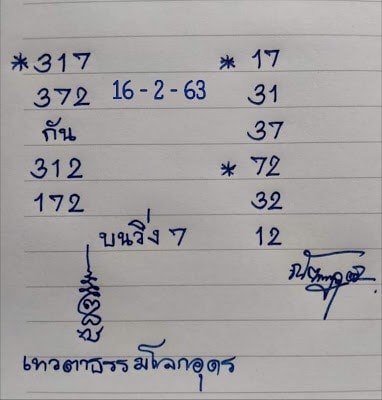 *317
372
กัน
312
172
16-2-63
* 17
31
37
* 72
32
12
บนวิ่ง 7
เทวดาธรรมโลกอุดร